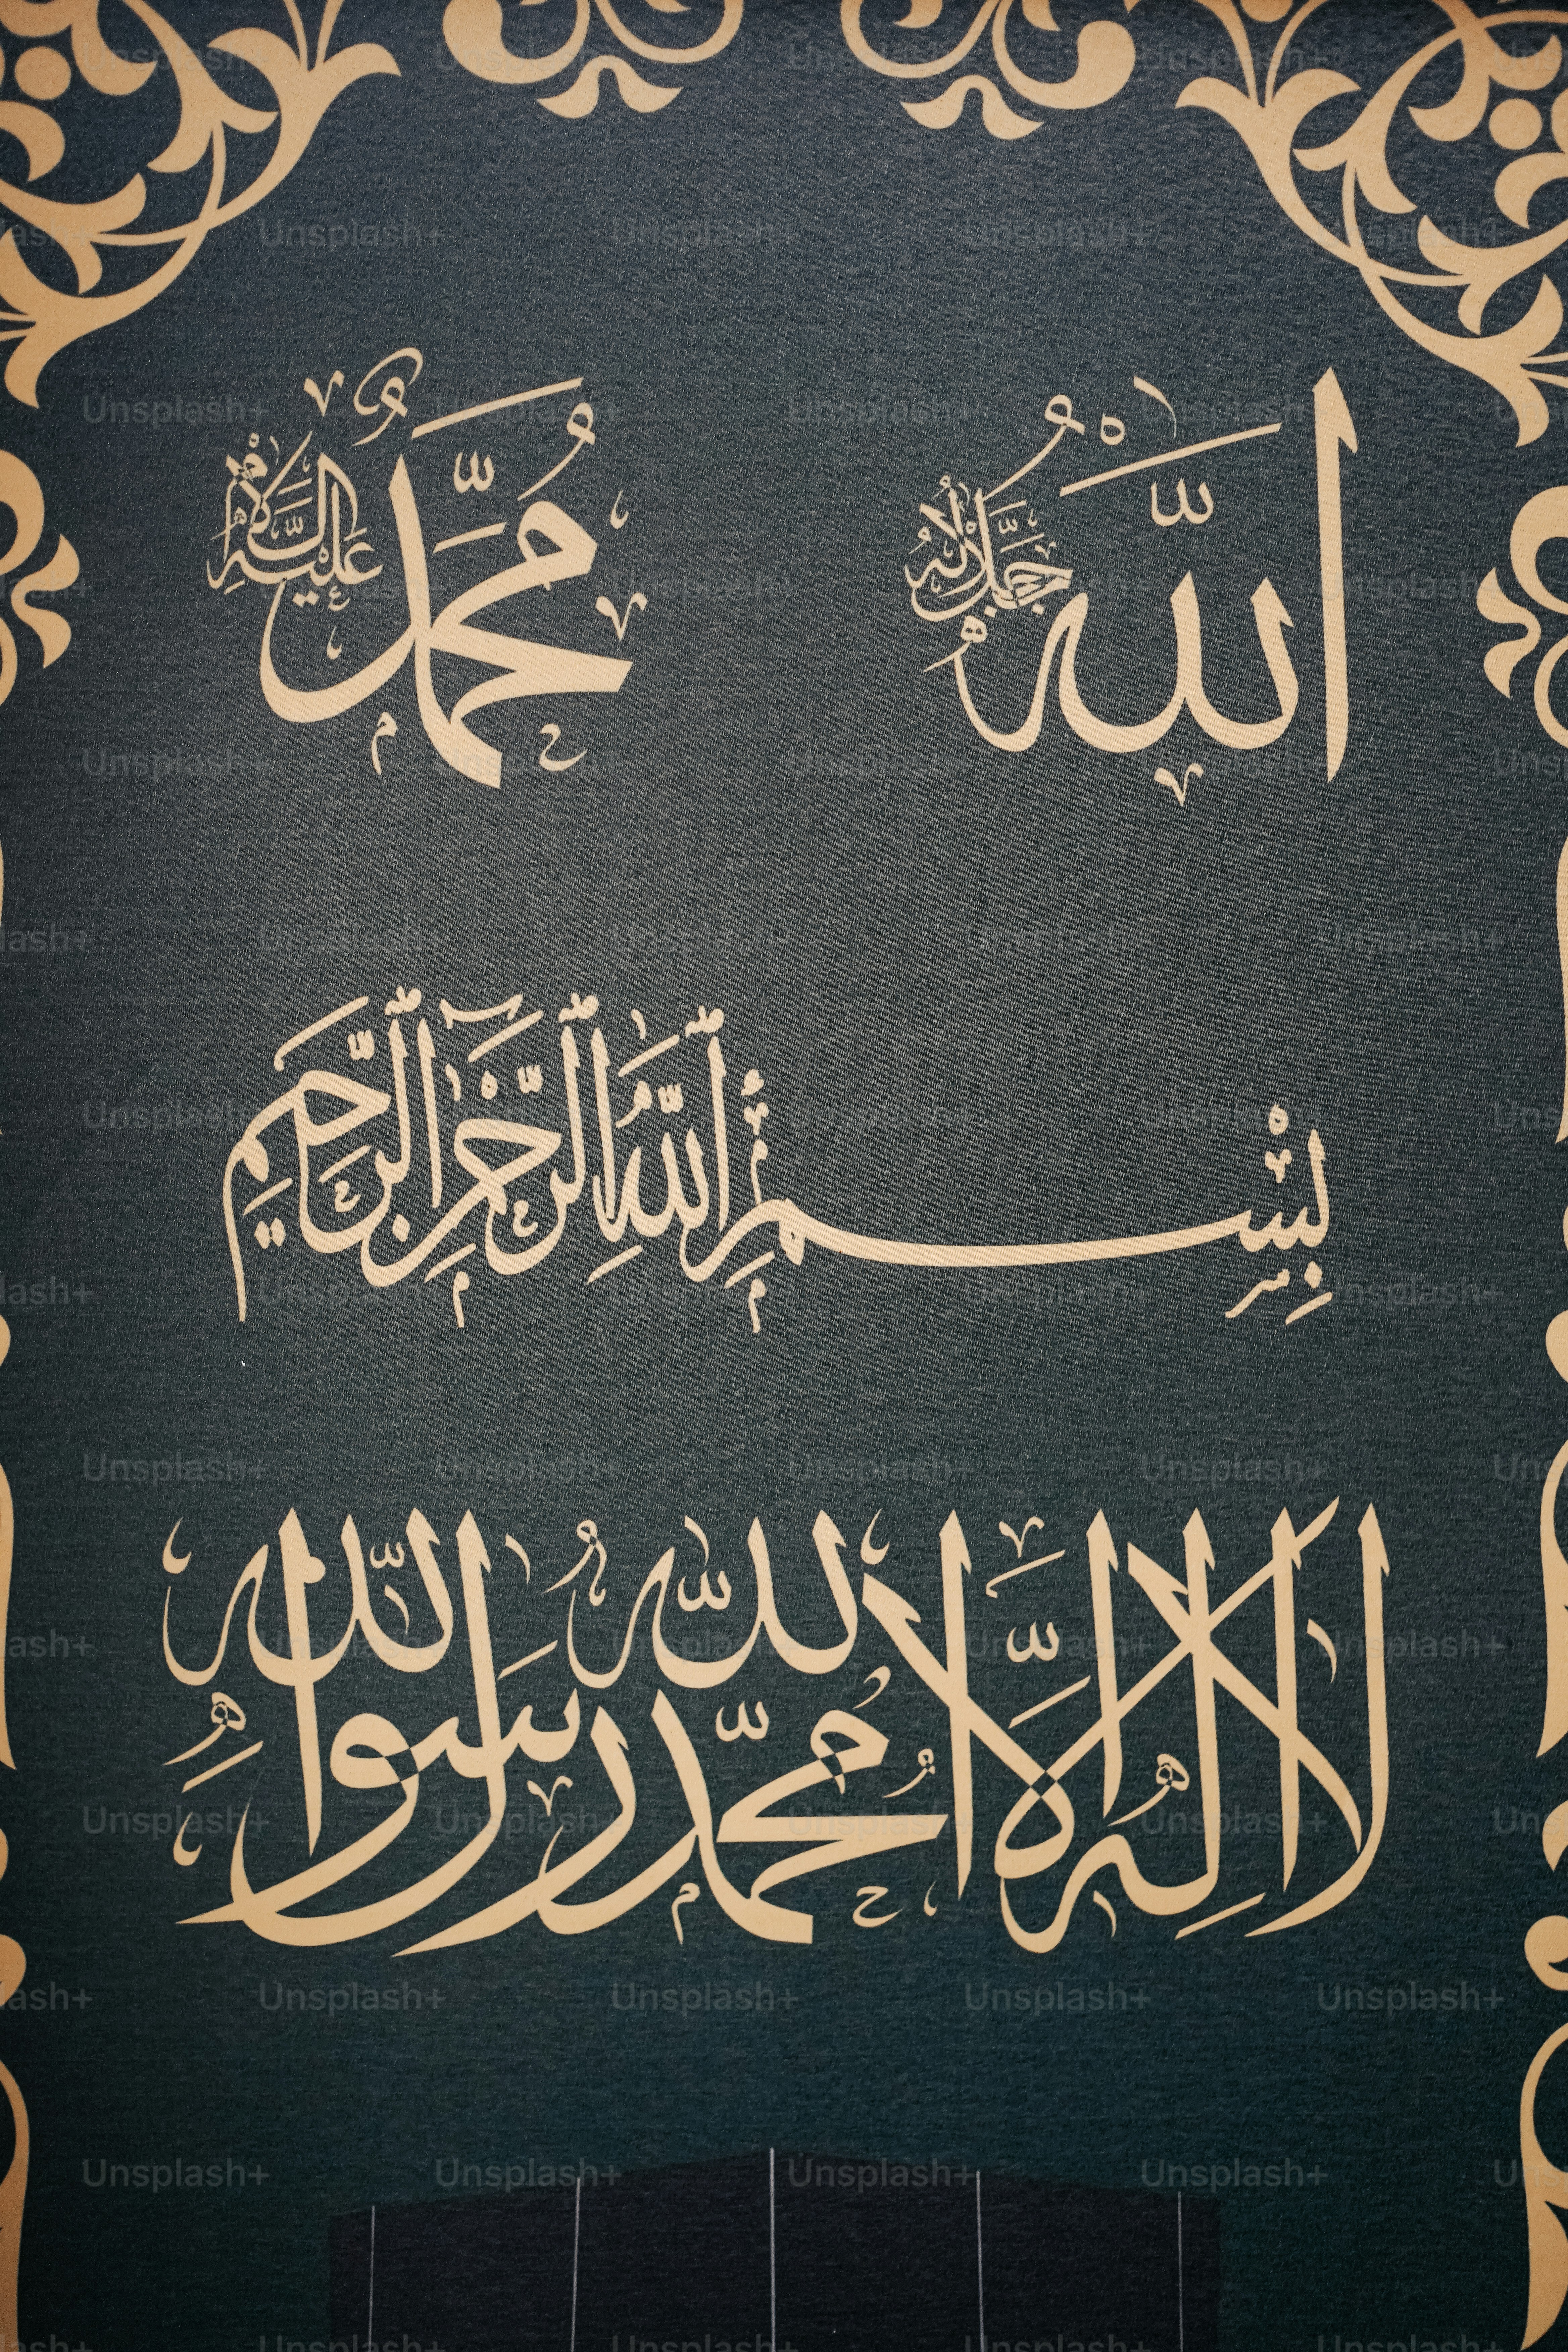 اللّٰه جَلَّ جَلَالُهُ
مُحَمَّد عَلَيْهِ السَّلَام
بِسْمِ ٱللَّهِ ٱلرَّحْمَٰنِ ٱلرَّحِيمِ
لا اله الا الله محمد رسول الله
Unsplash+